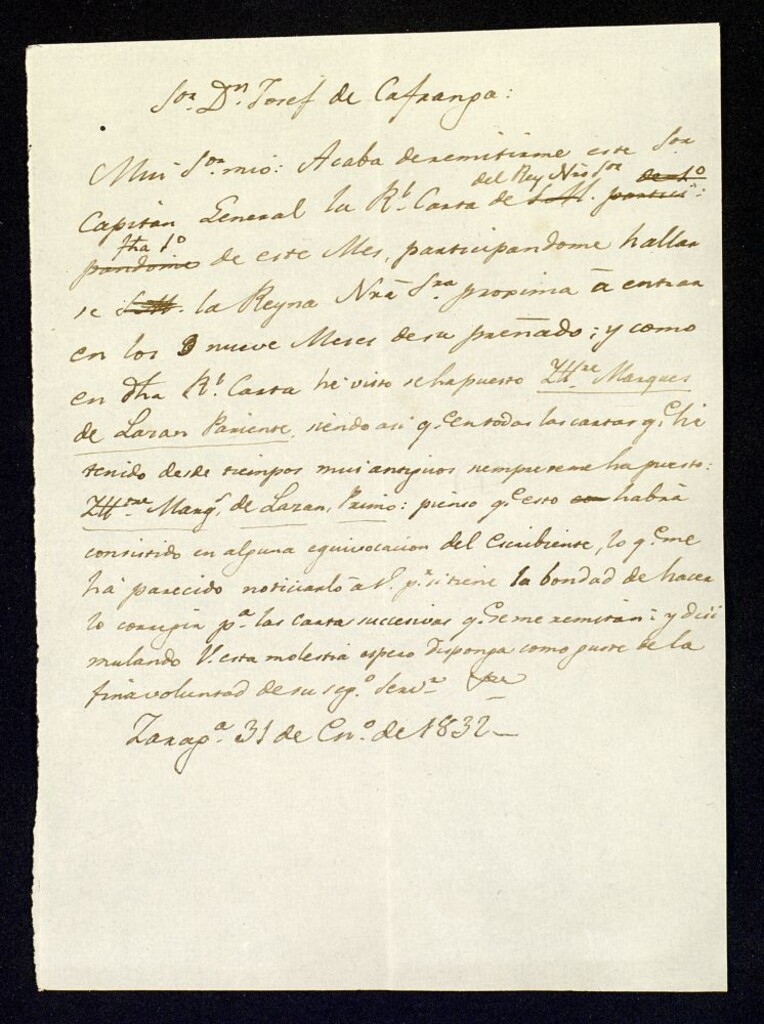 Sor. Dn. Josef de Cafranga:
Mui Sor. mio: Acaba de remitirme este Sor.
Capitan General la Rl. Carta de S.M. del Rey Nro Sor partici- de 1º
pandome fha 1º de este Mes, participandome hallar
se S.M. la Reyna Nra. Sra. proxima á entrar
en los 9 nueve Meses de su preñado; y como
en dha Rl. Carta hé visto se ha puesto Illtre. Marques
de Lazan Pariente, siendo asi q.e en todas las cartas q.e hé
tenido desde tiempos mui antiguos siempre se me ha puesto:
Illtre. Marqs. de Lazan, Primo: pienso q.e esto habrá
consistido en alguna equivocacion del Escribiente, lo q.e me
há parecido noticiarlo á V. p.r si tiene la bondad de hacer
lo corregir p.a las cartas succesivas q.e se me remitan: y disi
mulando V. esta molestia espero disponga como guste de la
fina voluntad de su seg.o Serv.r
Zarag.a 31 de En.o de 1832